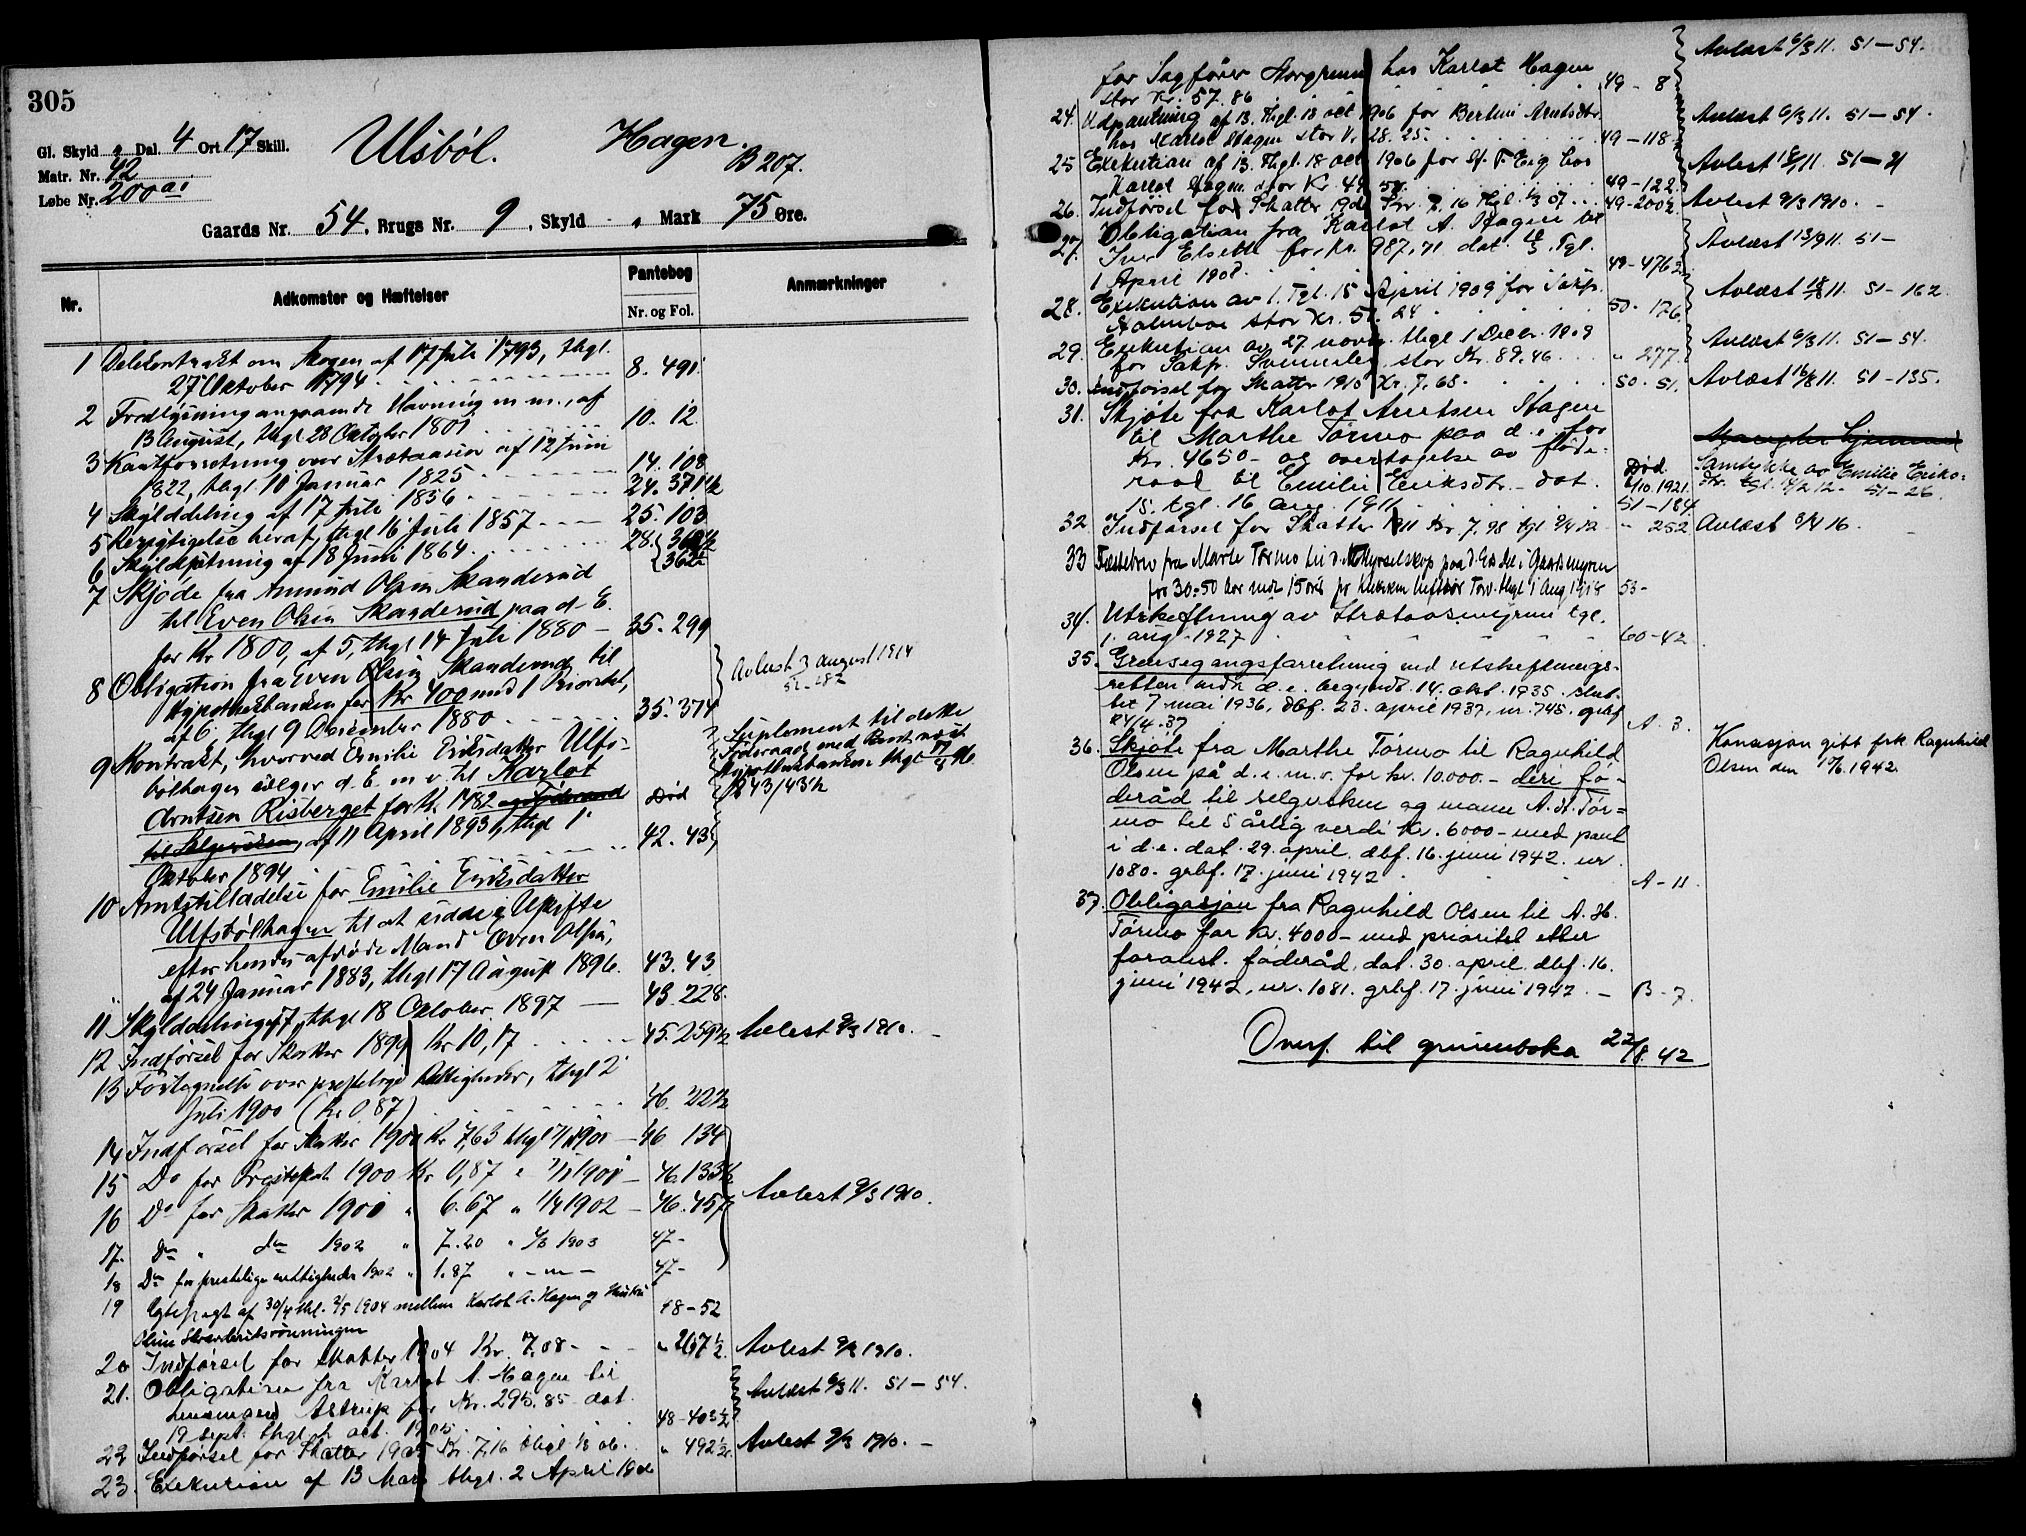 305
Gl. Skyld " Dal. 4 Ort 17 Skill.
Matr. Nr. 42
Løbe Nr. 200 a1
Ulsbøl. Hagen.
B 207.
Gaards Nr. 54, Brugs Nr. 9, Skyld " Mark 75 Øre.
Nr. Adkomster og Hæftelser Pantebog Anmærkninger
Nr. og Fol.
1 Delekontrakt om Skogen af 17 Juli 1793, thgl.
27 Oktober 1794 8. 491
2 Fredlysning angaaende Havning m.m., af
13 August, thgl 28 Oktober 1801 10. 12
3 Kautforretning over Strætaasen af 12 Juni
1822, thgl. 10 Januar 1825 14. 108
4 Skylddeling af 17 Juli 1856 24. 371½
5 Berigtigelse heraf, thgl 16 Juli 1857 25. 103
6 Skyldsætning af 18 Juni 1864 28. 362½
7 Skjøde fra Amund Olsen Skanderud
til Even Olsen Skanderud paa d. E.
for Kr 1800, af 5, thgl 14 Juli 1880 35. 299
8 Obligation fra Even Olsen Skanderud til
Hypothekbanken for Kr 400 med 1 Prioritet,
af 6. thgl 9 December 1880 35. 374
Avlest 3 august 1914
9 Kontrakt, hvorved Emilie Eriksdatter Ulfs-
bølhagen sælger d. E. m. v. til Karlot
Arntsen Risberget for Kr. 1482 og Føderaad
til Sælgersken, af 11 April 1893, thgl 1
Oktober 1894 Død 42. 43
Suplement til dette
Føderaad med
843/43½
10 Amtstilladelse for Emilie Eriksdatter
Ulfsbølhagen til at sidde i Uskifte
efter hendes afdøde Mand Even Olsen,
af 24 Januar 1883, thgl 17 August 1896. 43. 43
11 Skylddeling thgl 18 October 1897 43. 228.
12 Indførsel for Skatter 1899 Kr 10,17 45. 259½ Avlest 9/3 1910.
13 Fortegnelse over prestelige Rettigheder, thgl 2
Juli 1900 (Kr 0,87) 46. 22½
14 Indførsel for Skatter 1900 Kr 7,63 46 134
15 Do for Prestskat 1900 Kr 0,87 46. 133½
16 Do for Skatter 1901 " 6.67 " 1/4 1902 46. 457 Avlest 9/3 1910.
17. Do " do 1902 " 7.20 1903 47 -
18 Do for prestelige rettigheder 1902 " 1.87 " - " - 47 -
19 Egtepagt af 30/4 thl. 2/5 1904 mellem Karlot A. Hagen og Hustru
48 - 52
20 Indførsel for skatter 1904 Kr. 7,08 " 267½ Avlest 9/3 1910.
21. Obligation fra Karlot A. Hagen til
Lensmand Astrup for Kr. 295.85 dat.
19 Sept. thgl. oct. 1905. 48 - 403½ Avlæst 6/3 11. 51 - 54.
22 Indførsel for Skatter 1905 Kr. 7.16 thgl. 1/3 06. " 492½ Avlest 9/3 1910. -
23. Exekution af 13 Mars thgl. 2 April 1906
for Sagfører Norgrenn hos Karlot Hagen
stor Kr. 57.86 49 - 8 Avlæst 6/3 11. 51 - 54.
24. Udpantning af 13. thgl. 18 oct 1906 for Bertine Arntsdtr.
hos Karlot Hagen stor Kr. 28.25. 49 - 118 Avlæst 6/3 11. 51 - 54.
25 Exekution af 13. thgl. 18 oct 1906 for Sf. F. Eig hos
Karlot Hagen stor Kr. 49.58. 49 - 122. Avlest 51 - 21
26. Indførsel for Skatter 1906 Kr. 7.16 thgl. 1/3 07. 49 - 200½. Avlest 9/3 1910. -
27. Obligation fra Karlot A. Hagen til
Iver Elseth for Kr. 987,71 dat. Tgl.
1 April 1908. 49 - 476½ Avlæst 13/9 11. 51 -
28. Exekution av 1. Tgl. 15 April 1909 for Sakf.
Holmboe stor Kr. 57.24 50 - 176. Avlæst 11. 51 - 162.
29. Exekution av 27 novbr. thgl 1 Decbr. 1909
for Sakf. stor Kr. 89.46 " 277. Avlæst 6/3 11. 51 - 54.
30. Indførsel for Skatter 1910 Kr. 7.68. 50 - 51. Avlæst 16/8 11. 51 - 135.
31. Skjøte fra Karlot Arntsen Hagen
til Marthe Tørmo paa d. e. for
Kr. 4650.- og overtagelse av føde-
raad til Emilie Eriksdtr. - dat.
15. tgl. 16 aug. 1911 51 - 184
Død 1921.
Samtykke av Emilie Eriks-
dtr. tgl. 14/2 12. - 51 - 26.
32. Indførsel for Skatter 1911 Kr. 7.98 tgl. 9/4 12 " 252 Avlæst 3/4 16
33 Festebrev fra Marte Tørmo til paa d. Es del i Gaardsmyren
for 30-50 Aar mod 15 øre pr. lufttør Torv. thgl 1 Aug 1918 53 -
34. Utskiftning av Strætaasmyrene tgl.
1. aug. 1927 60 - 42.
35. Grensegangsforretning ved utskiftnings-
retten vedr. d. e. begyndt 14. okt. 1935. slut-
tet 7 mai 1936, dbf. 23. april 1937, nr. 745. grbf
24/4.37 A - 3.
36. Skjøte fra Marthe Tørmo til Ragnhild
Olsen på d. e. m. v. for kr. 10.000.- deri fø-
deråd til selgersken og mann A. H. Tør-
mo til 5 årlig verdi kr. 6000.- med pant
i d. e. dat. 29. april. dbf. 16. juni 1942. nr
1080. grbf. 17. juni 1942 A - 11.
Konsesjon gitt frk. Ragnhild
Olsen den 17/6 1942.
37. Obligasjon fra Ragnhild Olsen til A. H.
Tørmo for kr. 4000.- med prioritet etter
foranst. føderåd, dat. 30. april. dbf. 16.
juni 1942, nr. 1081. grbf. 17. juni 1942. - B - 7.
Overf. til grunnboka 22/8.42